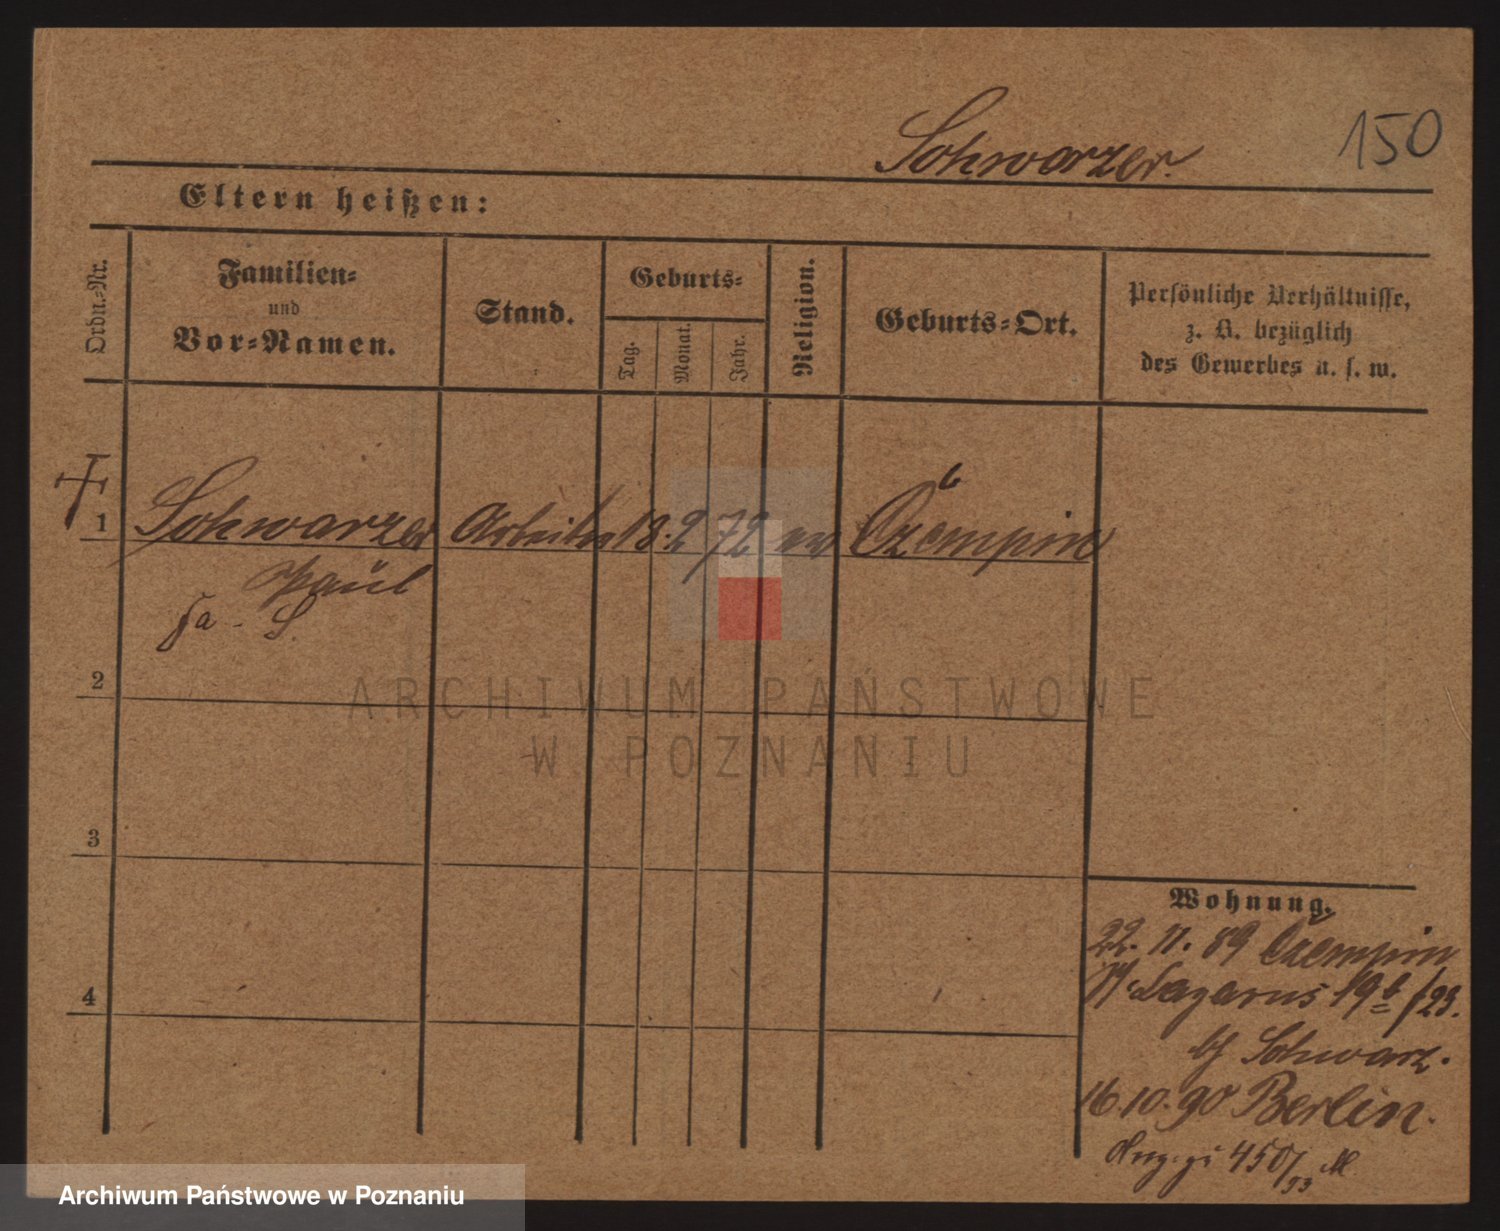 150
Schwarzer.
Eltern heißen:
Ordn.-Nr.
Familien-
und
Vor-Namen.
Stand.
Geburts-
Tag.
Monat.
Jahr.
Religion.
Geburts-Ort.
Persönliche Verhältnisse,
z. B. bezüglich
des Gewerbes u. s. w.
1 Schwarzer Arbeiter 18. 2 72 Czempin
Paul
2
3
4
ARCHIWUM PAŃSTWOWE
W POZNANIU
Wohnung.
22. 11. 89 Czempin
Lazarus 19b /23.
b/ Schwarz.
16. 10. 90 Berlin.
450/93 M
Archiwum Państwowe w Poznaniu